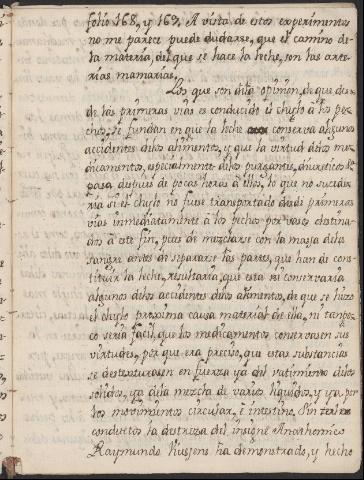 folio 168, y 169. A vista de estos experimentos
no me parece puede dudarse, que el camino de
la materia, de que se hace la leche, son las arte
rias mamarias.
Los que son de la opinion, de que des
de las primeras vias es conducido el chylo à los pe
chos, se fundan en que la leche conserva algunos
accidentes de los alimentos, y que la virtud de los me
dicamentos, especialmente de los purgantes, diureticos
pasa despues de pocas horas à ellos, lo que no sucede
ria si el chylo no fuese transportado desde primeras
vias inmediatamente à los pechos por vasos destina
dos à este fin, pues de mezclarse con la massa de la
sangre antes de separarse las partes, que han de cons
tituir la leche, resultaria, que esta ni conservaria
algunos de los accidentes de los alimentos, de que se hizo
el chylo proxima causa material de ella, ni tampo
co seria facil, que los medicamentos conservasen sus
virtudes, por que era preciso, que estas substancias
se desvirtuasen en fuerza ya del batimiento de los
solidos, ya de la mezcla de varios liquidos, y ya por
los movimientos circular, è intestino. Sin
conductos la destreza del insigne Anathomico
Raymundo ha demonstrado, y hecho